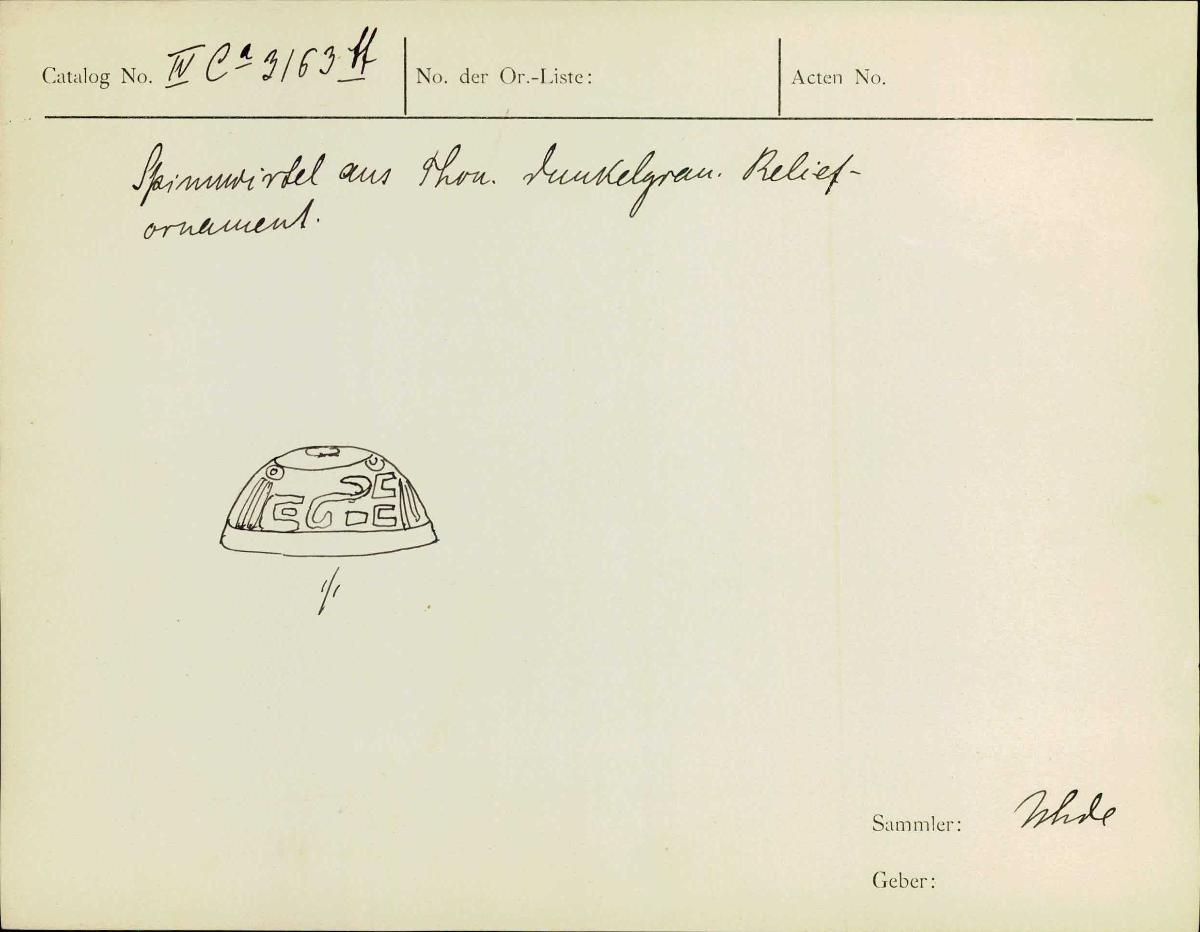 Catalog No. IV Ca 3163 ff
No. der Or.-Liste:
Acten No.
Spinnwirtel aus Thon. dunkelgrau. Relief-
ornament.
1/1
Sammler: Uhde
Geber: